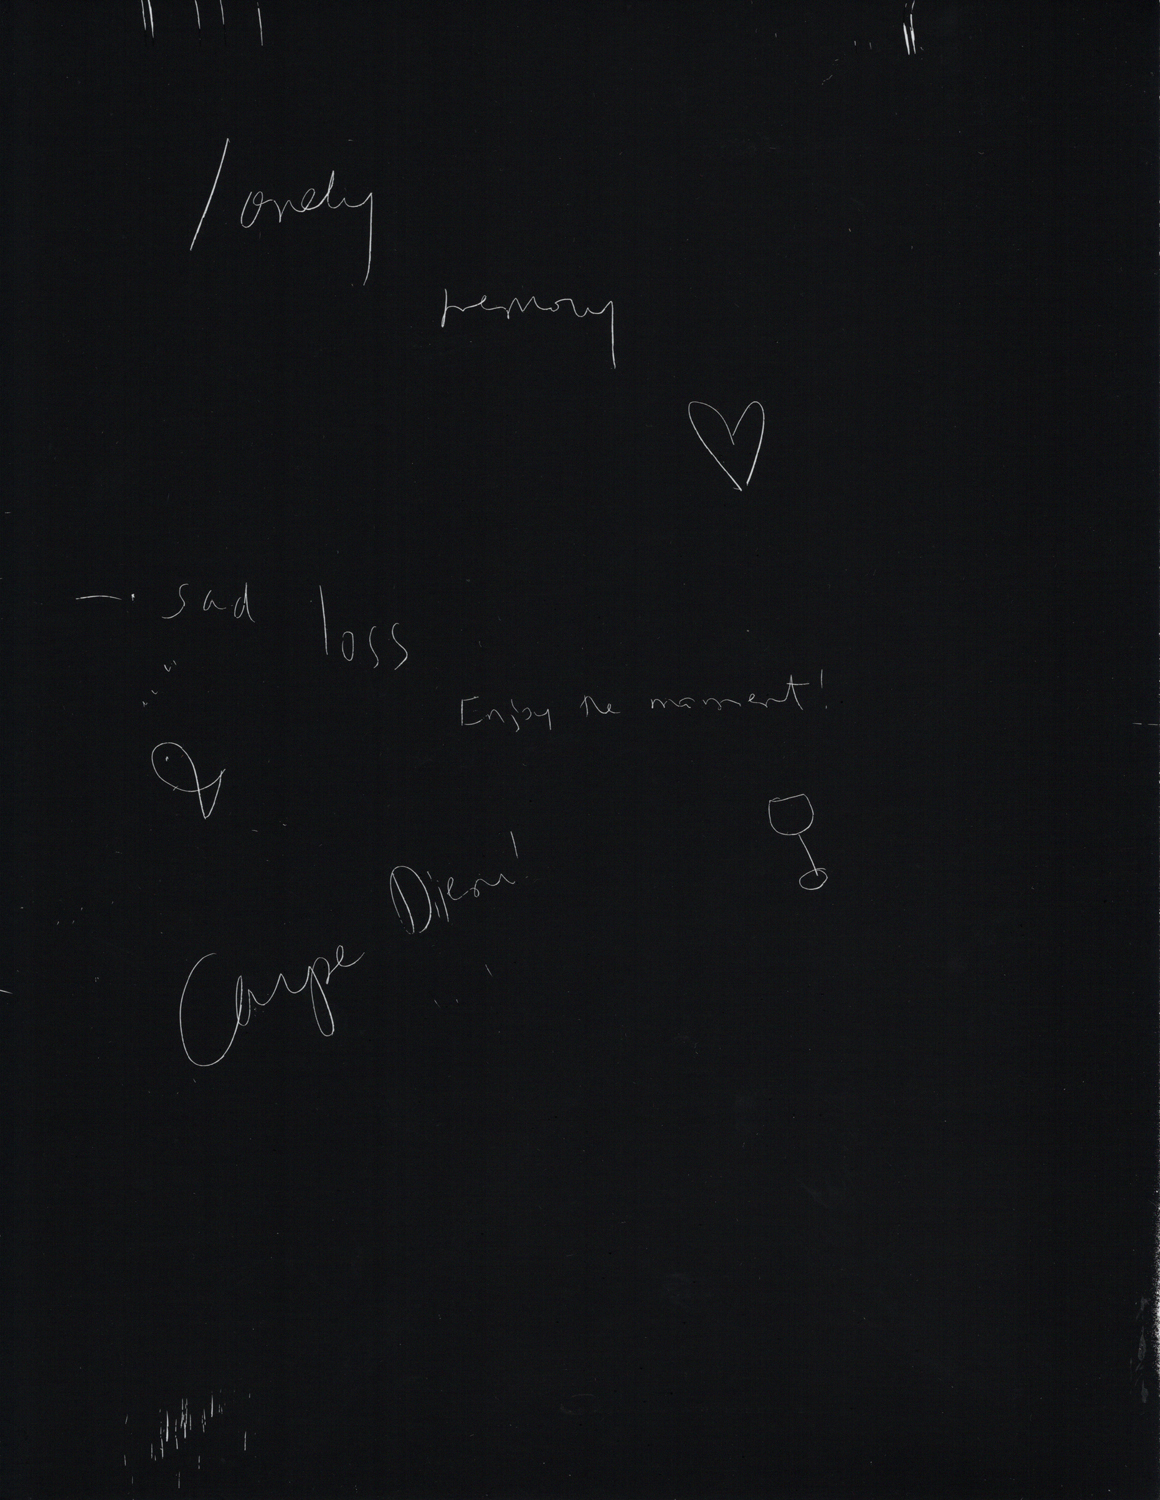 lonely
memory
sad loss
Enjoy the moment!
Carpe Diem!